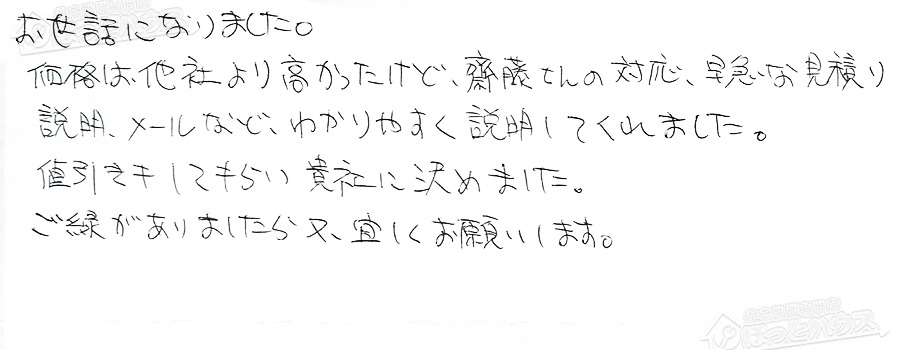 お世話になりました。
価格は他社より高かったけど、齋藤さんの対応、早急な見積り
説明、メールなど、わかりやすく説明してくれました。
値引きもしてもらい貴社に決めました。
ご縁がありましたら又、宜しくお願いします。
ほっとハウス